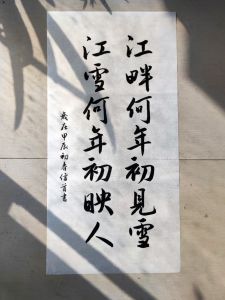 江畔何年初見雪
江雪何年初映人
歲在甲辰初春信首書